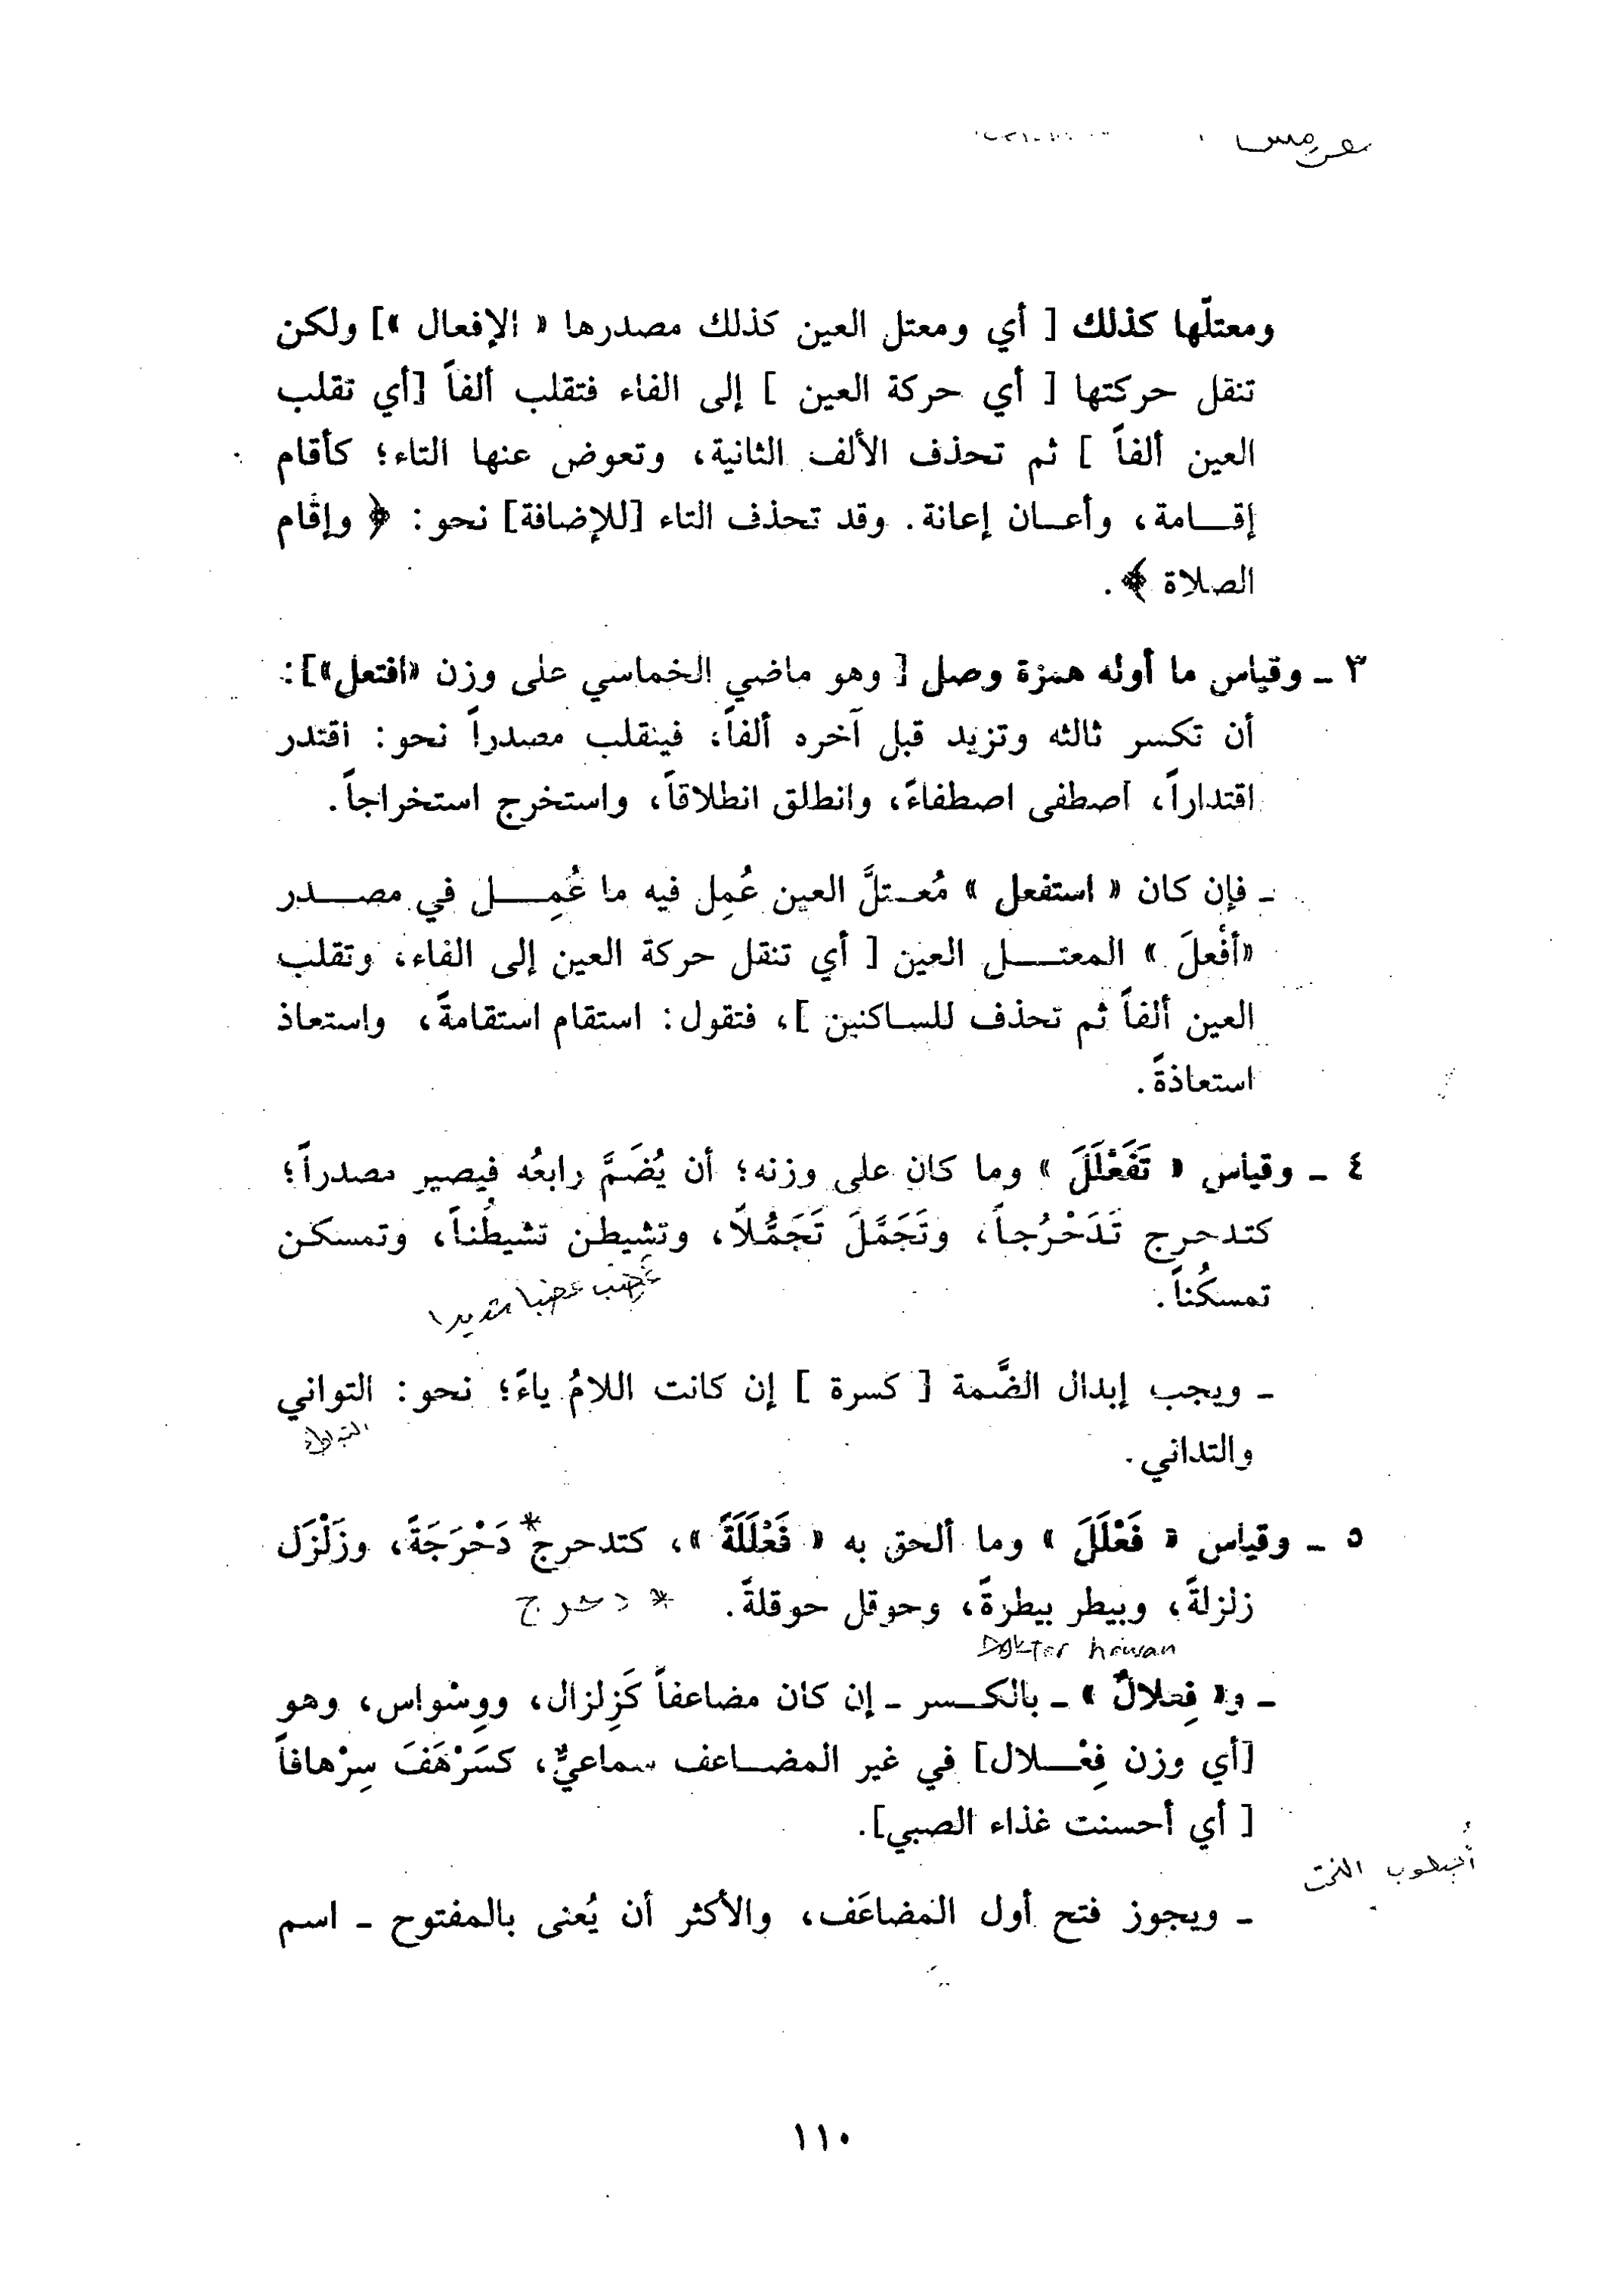 ومعتلّها كذلك [ أي ومعتل العين كذلك مصدرها « الإفعال »] ولكن
تنقل حركتها [ أي حركة العين ] إلى الفاء فتقلب ألفاً [أي تقلب
العين ألفاً ] ثم تحذف الألف الثانية، وتعوض عنها التاء؛ كأقام
إقـــامة، وأعـــان إعانة. وقد تحذف التاء [للإضافة] نحو: ﴿ وإقام
الصلاة ﴾.
٣ ـ وقياس ما أوله همزة وصل [ وهو ماضي الخماسي على وزن «افتعل»]:
أن تكسر ثالثه وتزيد قبل آخره ألفاً، فينقلب مصدراً نحو: اقتدر
اقتداراً، اصطفى اصطفاءً، وانطلق انطلاقاً، واستخرج استخراجاً.
ـ فإن كان « استفعل » مُعـتلَّ العين عُمِل فيه ما عُمِــــل في مصــــدر
«أفْعلَ » المعتــــل العين [ أي تنقل حركة العين إلى الفاء، وتقلب
العين ألفاً ثم تحذف للساكنين ]، فتقول: استقام استقامةً، واستعاذ
استعاذةً.
٤ ـ وقياس « تَفَعْلَلَ » وما كان على وزنه؛ أن يُضَمَّ رابعُه فيصير مصدراً؛
كتدحرج تَدَحْرُجاً، وتَجَمَّلَ تَجَمُّلاً، وتشيطن تشيطُناً، وتمسكن
غضب غضبا شديدا
تمسكُناً.
ـ ويجب إبدال الضَّمة [ كسرة ] إن كانت اللامُ ياءً؛ نحو: التواني
والتداني.
٥ ـ وقياس « فَعْلَلَ » وما ألحق به « فَعْلَلَةً »، كتدحرج* دَحْرَجَةً، وزَلْزَل
زلزلةً، وبيطر بيطرةً، وحوقل حوقلةً. * دحرج
Dokter hewan
ـ و« فِعلالٌ » ـ بالكـــسر ـ إن كان مضاعفاً كَزِلزال، ووِسْواس، وهو
[أي وزن فِعْـــلال] في غير المضـــاعف سماعيٌّ، كسَرْهَفَ سِرْهافاً
[ أي أحسنت غذاء الصبي].
ـ ويجوز فتح أول المضاعَف، والأكثر أن يُعنى بالمفتوح ـ اسم
١١٠